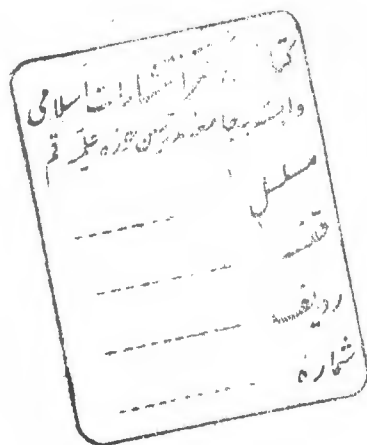 کتابخانه دفتر انتشارات اسلامی
وابسته به جامعه مدرسین حوزه علمیه قم
مسلسل
قفسه
ردیف
شماره